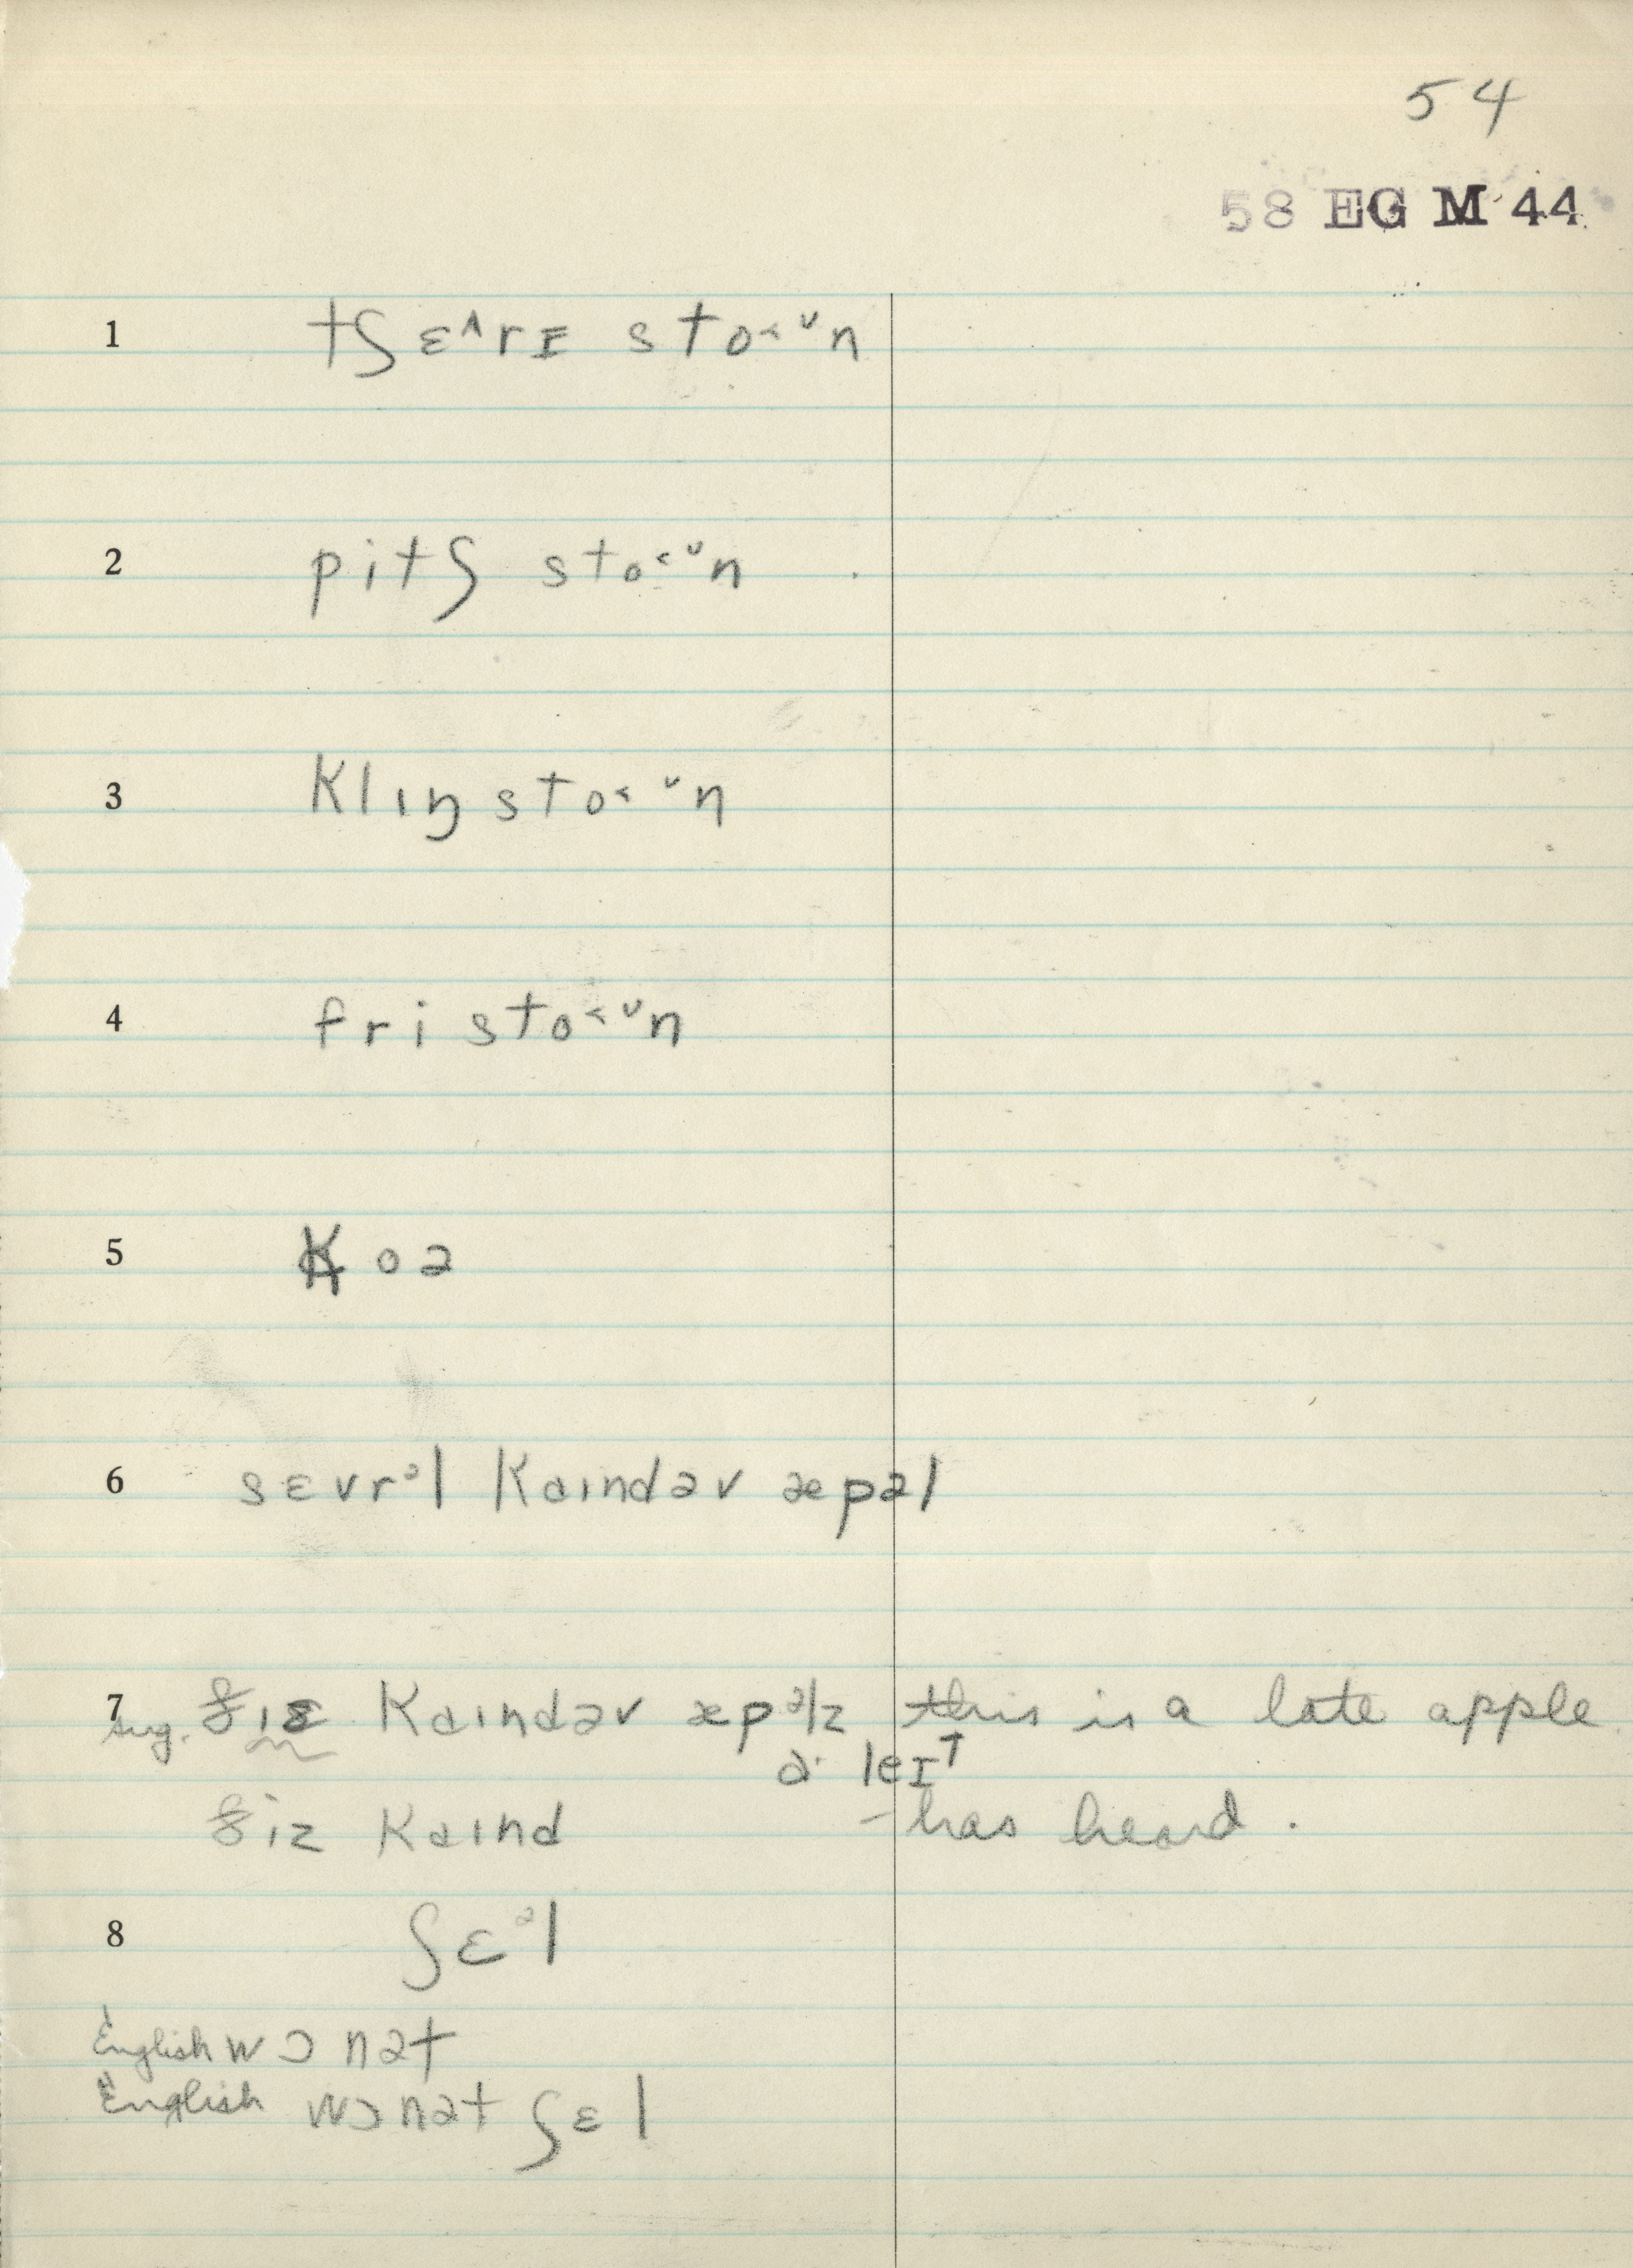 54
58 EG M 44
1 tʃɛ˄rɪ sto˂ᵕn
2 pitʃ sto˂ᵕn
3 klıŋ sto˂ᵕn
4 fri sto˂ᵕn
5 koə
6 sɛvrᵊl kaındəv æpəl
7 ðız kaındəv æpᵊlz this is a late apple
sug. ə leɪT
ðiz kaınd – has heard.
8 ʃɛᵊl
English wɔnət
English wɔnət ʃɛl